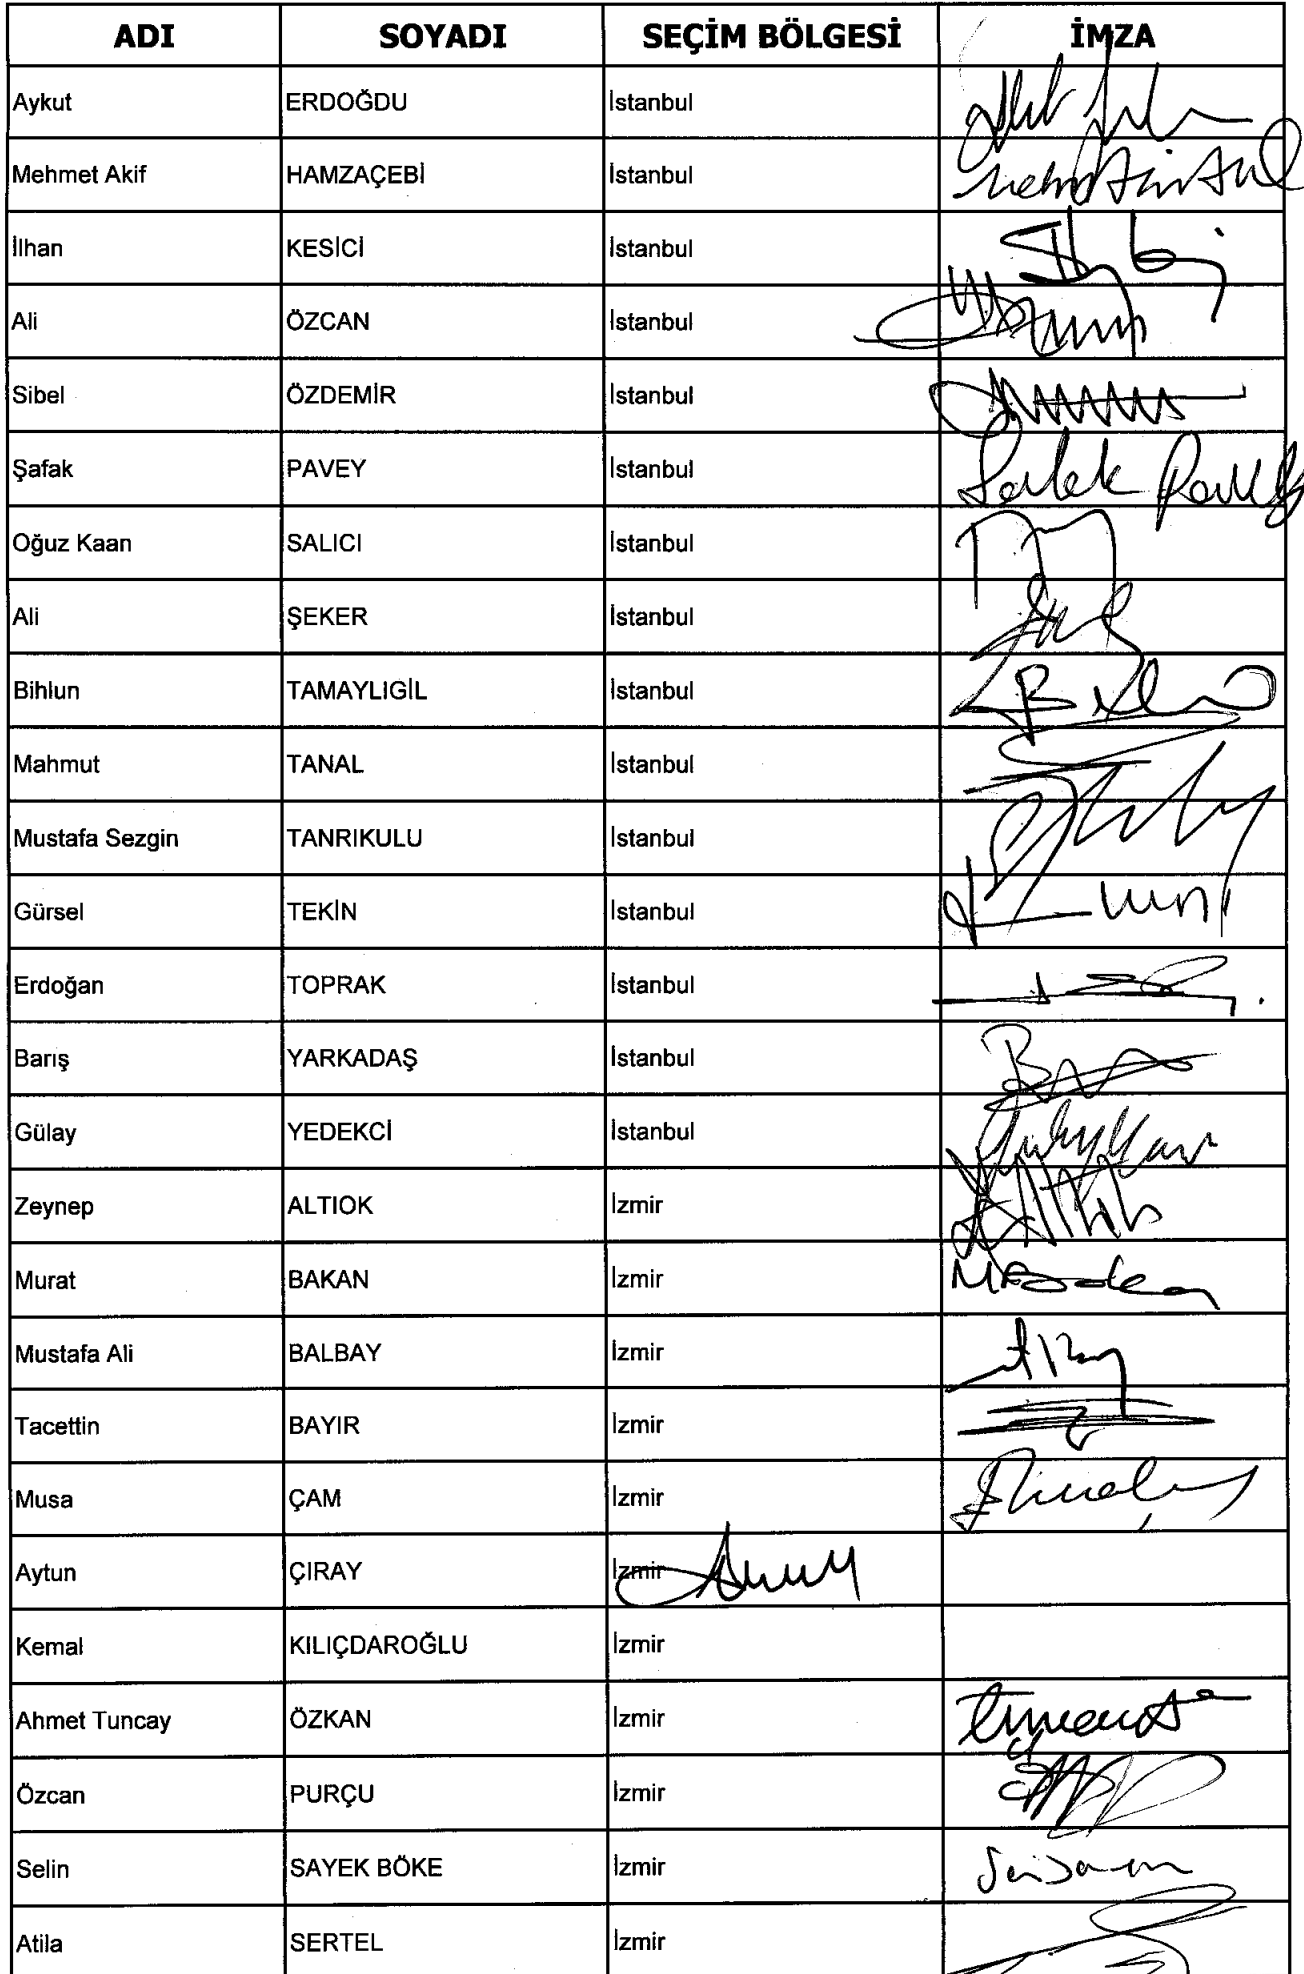 ADI SOYADI SEÇİM BÖLGESİ İMZA
Aykut ERDOĞDU İstanbul
Mehmet Akif HAMZAÇEBİ İstanbul
İlhan KESİCİ İstanbul
Ali ÖZCAN İstanbul
Sibel ÖZDEMİR İstanbul
Şafak PAVEY İstanbul
Oğuz Kaan SALICI İstanbul
Ali ŞEKER İstanbul
Bihlun TAMAYLIGİL İstanbul
Mahmut TANAL İstanbul
Mustafa Sezgin TANRIKULU İstanbul
Gürsel TEKİN İstanbul
Erdoğan TOPRAK İstanbul
Barış YARKADAŞ İstanbul
Gülay YEDEKCİ İstanbul
Zeynep ALTIOK İzmir
Murat BAKAN İzmir
Mustafa Ali BALBAY İzmir
Tacettin BAYIR İzmir
Musa ÇAM İzmir
Aytun ÇIRAY İzmir
Kemal KILIÇDAROĞLU İzmir
Ahmet Tuncay ÖZKAN İzmir
Özcan PURÇU İzmir
Selin SAYEK BÖKE İzmir
Atila SERTEL İzmir